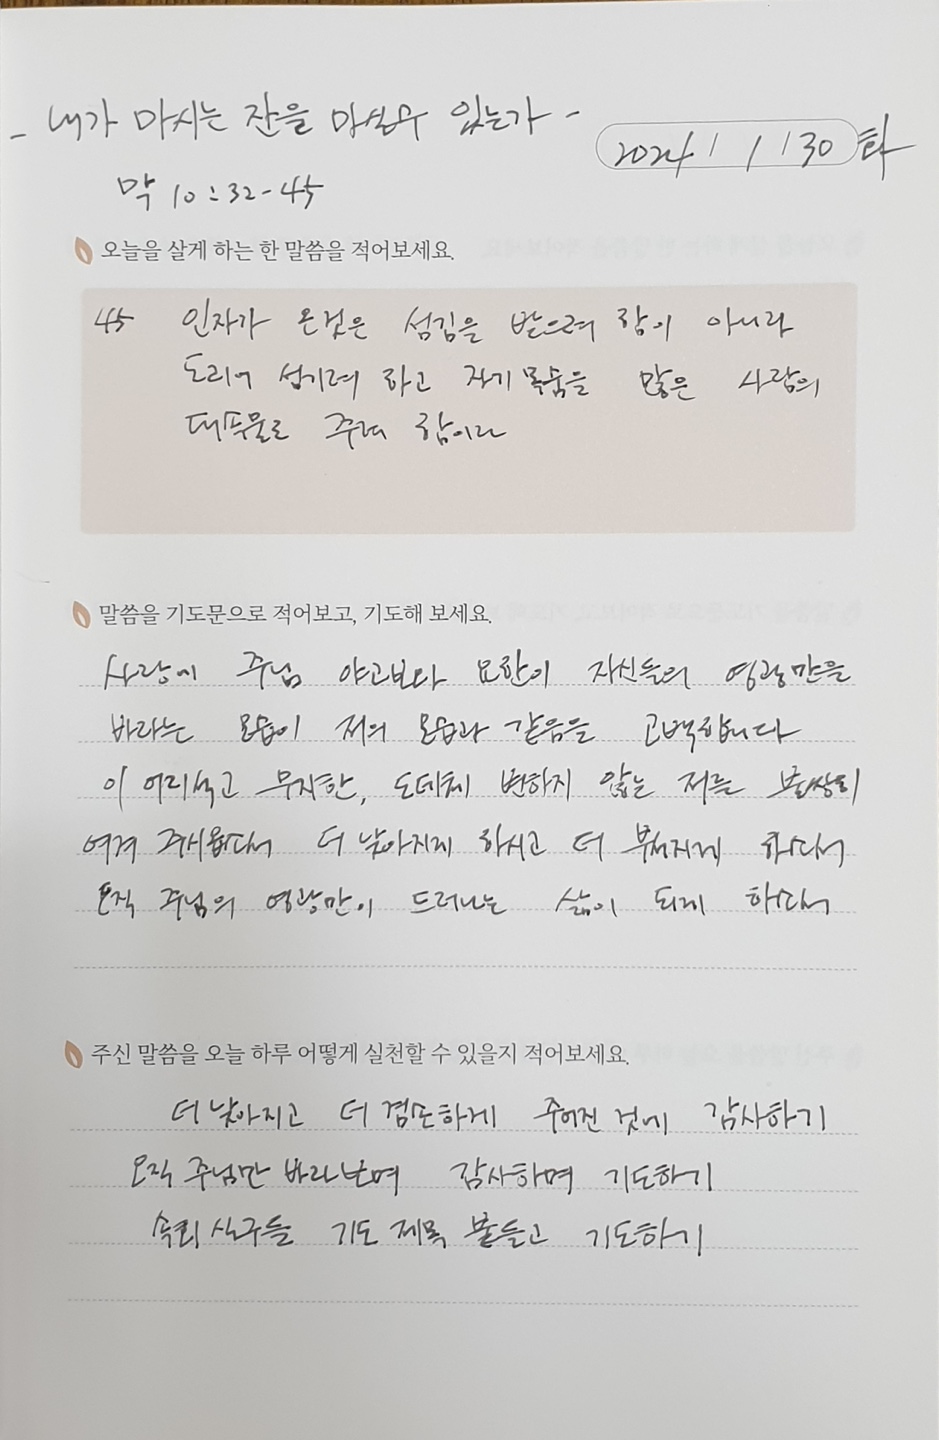 - 내가 마시는 잔을 마실수 있는가 -
2024 / 1 / 30 화
막 10:32-45
오늘을 살게 하는 한 말씀을 적어보세요.
45 인자가 온것은 섬김을 받으려 함이 아니라
도리어 섬기려 하고 자기 목숨을 많은 사람의
대속물로 주려 함이라
말씀을 기도문으로 적어보고, 기도해 보세요.
사랑에 주님 야고보와 요한이 자신들의 영광만을
바라는 모습이 저의 모습과 같음을 고백합니다
이 어리석고 무지한, 도데체 변하지 않는 저를 불쌍히
여겨 주시옵소서 더 낮아지게 하시고 더 부숴지게 하소서
오직 주님의 영광만이 드러나는 삶이 되게 하소서
주신 말씀을 오늘 하루 어떻게 실천할 수 있을지 적어보세요.
더 낮아지고 더 겸손하게 주어진 것에 감사하기
오직 주님만 바라보며 감사하며 기도하기
속회 식구들 기도 제목 붙들고 기도하기